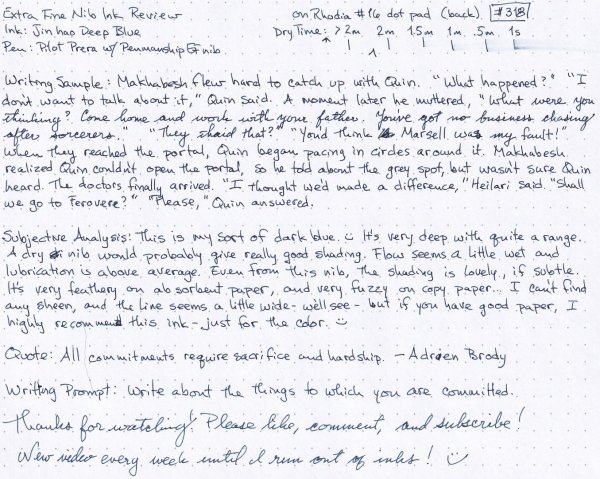 Extra Fine Nib Ink Review on Rhodia #16 dot pad (back) #318
Ink: Jinhao Deep Blue Dry Time: >2m 2m 1.5m 1m .5m 1s
Pen: Pilot Prera w/ Penmanship EF nib
Writing Sample: Makhabesh flew hard to catch up with Quin. "What happened?" "I
don't want to talk about it," Quin said. A moment later he muttered, "What were you
thinking? Come home and work with your father. You've got no business chasing
after sorcerers." "They said that?" "You'd think Marsell was my fault!"
When they reached the portal, Quin began pacing in circles around it. Makhabesh
realized Quin couldn't open the portal, so he told about the grey spot, but wasn't sure Quin
heard. The doctors finally arrived. "I thought we'd made a difference," Heilari said. "Shall
we go to Ferovere?" "Please," Quin answered.
Subjective Analysis: This is my sort of dark blue. It's very deep with quite a range.
A dry nib would probably give really good shading. Flow seems a little wet and
lubrication is above average. Even from this nib, the shading is lovely, if subtle.
It's very feathery on absorbent paper, and very fuzzy on copy paper... I can't find
any sheen, and the line seems a little wide - we'll see - but if you have good paper, I
highly recommend this ink - just for the color. :)
Quote: All commitments require sacrifice and hardship. - Adrien Brody
Writing Prompt: Write about the things to which you are committed.
Thanks for watching! Please like, comment, and subscribe!
New video every week until I run out of inks! :)